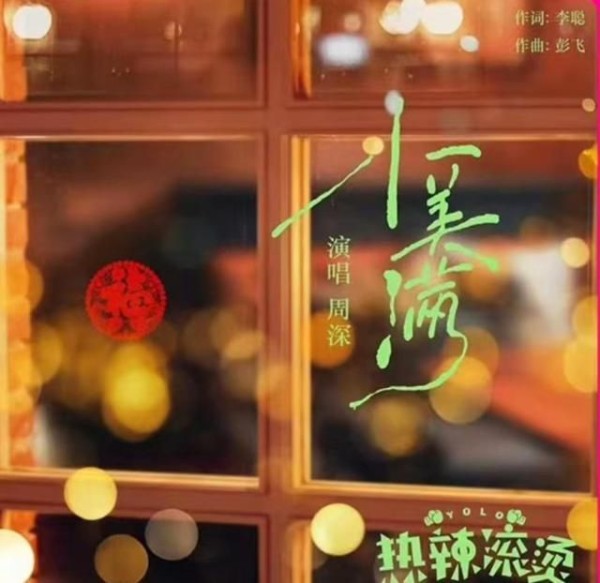 作词: 李聪
作曲: 彭飞
小美满
演唱 周深
YOLO
热辣滚烫